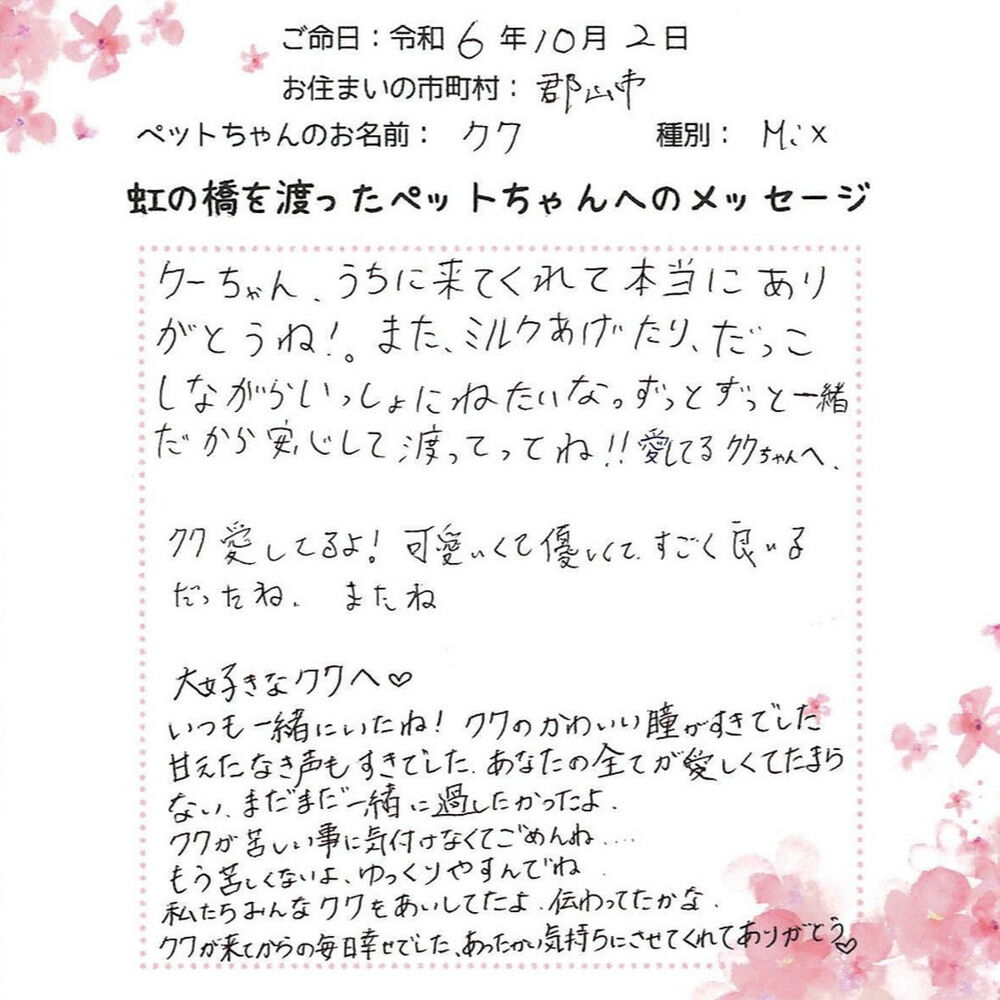 ご命日：令和 6 年 10 月 2 日
お住まいの市町村： 郡山市
ペットちゃんのお名前： クク 種別： Mix
虹の橋を渡ったペットちゃんへのメッセージ
クーちゃん、うちに来てくれて本当にあり
がとうね!。また、ミルクあげたり、だっこ
しながらいっしょにねたいな。ずっとずっと一緒
だから安心して渡ってってね!!愛してるククちゃんへ、
クク愛してるよ!可愛いくて優しくて、すごく良い子
だったね、またね
大好きなククへ♡
いつも一緒にいたね!ククのかわいい瞳がすきでした
甘えたなき声もすきでした、あなたの全てが愛しくてたまら
ない、まだまだ一緒に過したかったよ、
ククが苦しい事に気付けなくてごめんね….
もう苦しくないよ、ゆっくりやすんでね
私たちみんなククをあいしてたよ、伝わってたかな、
ククが来てからの毎日幸せでした、あったかい気持ちにさせてくれてありがとう♡